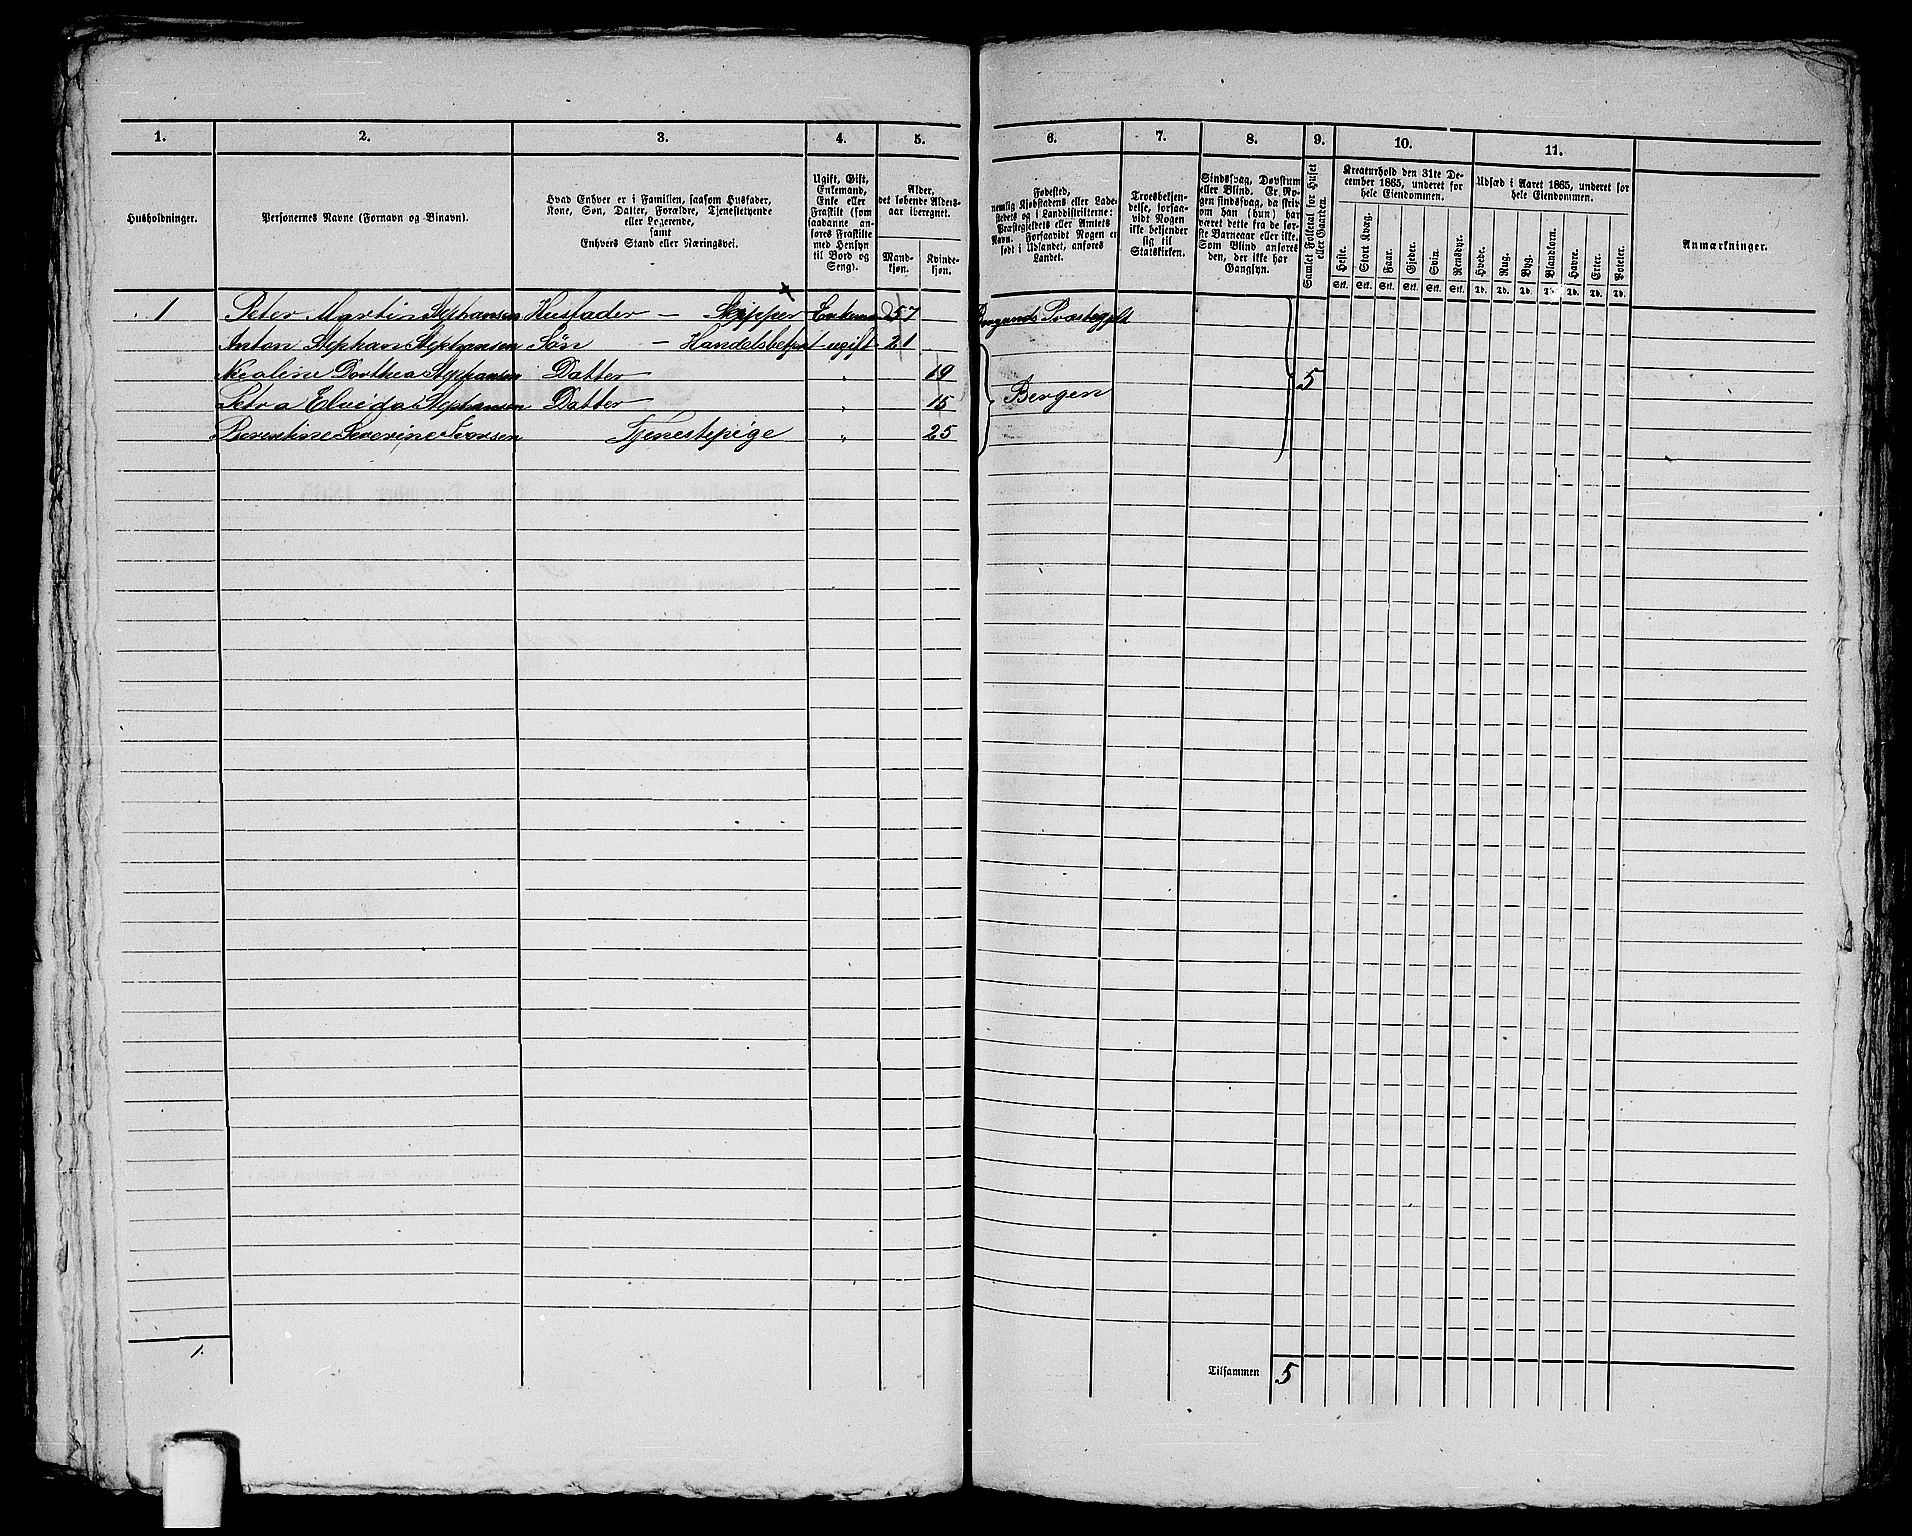 1. 2. 3. 4. 5. 6. 7. 8. 9. 10. 11.
Husholdninger.
Personernes Navne (Fornavn og Binavn).
Hvad Enhver er i Familien, saasom Husfader,
Kone, Søn, Datter, Forældre, Tjenestetyende
eller Logerende,
samt
Enhvers Stand eller Næringsvei.
Ugift, Gift,
Enkemand,
Enke eller
Fraskilt (som
saadanne an-
føres Fraskilte
med Hensyn
til Bord og
Seng).
Alder,
det løbende Alders-
aar iberegnet.
Mand-
kjøn.
Kvinde-
kjøn.
Fødested,
nemlig Kjøbstadens eller Lade-
stedets og i Landdistrikterne:
Præstegjeldets eller Amtets
Navn. Forsaavidt Nogen er
født i Udlandet, anføres
Landet.
Troesbekjen-
delse, forsaa-
vidt Nogen
ikke bekjender
sig til
Statskirken.
Sindssvag, Døvstum
eller Blind. Er No-
gen sindssvag, da skriv
om han (hun) har
været dette fra de før-
ste Barneaar eller ikke.
Som Blind anføres
den, der ikke har
Gangsyn.
Samlet Folketal for Huset
eller Gaarden.
Kreaturhold den 31te De-
cember 1865, underet for
hele Eiendommen.
Heste. Stort Kvæg. Faar. Gjeder. Svin. Rensdyr.
Stk. Stk. Stk. Stk. Stk. Stk.
Udsæd i Aaret 1865, underet for
hele Eiendommen.
Hvede. Rug. Byg. Blandkorn. Havre. Erter. Poteter.
Td. Td. Td. Td. Td. Td. Td.
Anmærkninger.
1 Peter Martin Stephansen Husfader — Skipper Enkemand 57 Borgunds Præstegjelt
Anton Stephan Stephansen Søn — Handelsbetjent ugift 21
Nicoline Dorthea Stephansen Datter „ 19 5
Petra Elvida Stephansen Datter „ 15 Bergen
Berentine Severine Iversen Tjenestepige „ 25
1.
Tilsammen 5